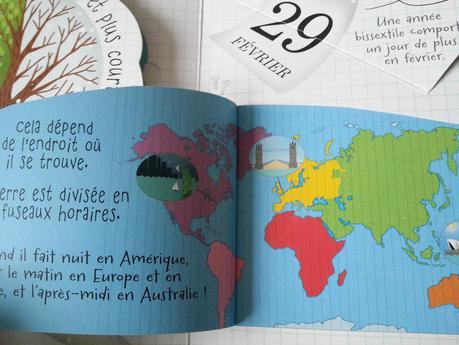 et plus cour
29
FÉVRIER
Une année
bissextile comport
un jour de plus
en février.
Cela dépend
de l'endroit où
il se trouve.
erre est divisée en
fuseaux horaires.
nd il fait nuit en Amérique,
le matin en Europe et en
e, et l'après-midi en Australie !